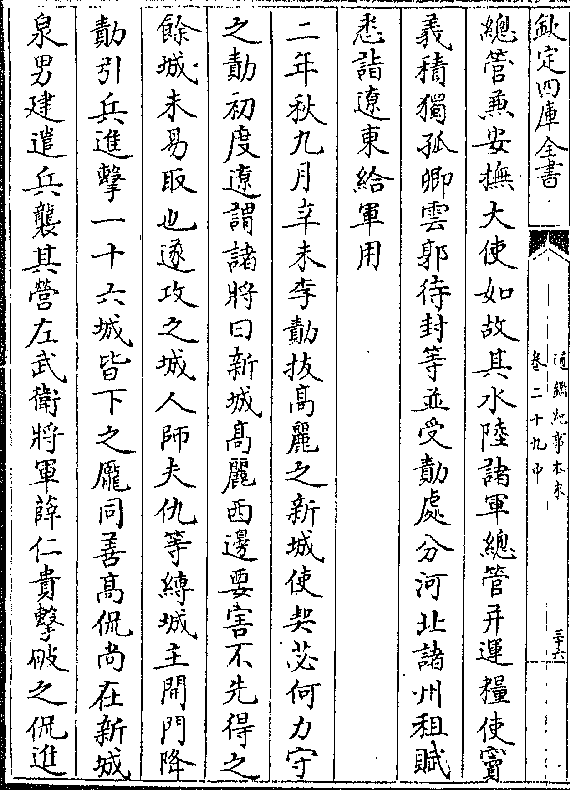 欽定四庫全書
通鑑紀事本末
卷二十九中
三十六
總管兼安撫大使如故其水陸諸軍總管并運糧使竇
義積獨孤卿雲郭待封等並受勣處分河北諸州租賦
悉詣遼東給軍用
二年秋九月辛未李勣拔高麗之新城使契苾何力守
之勣初度遼謂諸將曰新城髙麗西邊要害不先得之
餘城未易取也遂攻之城人師夫仇等縛城主開門降
勣引兵進擊一十六城皆下之龐同善高侃尚在新城
泉男建遣兵襲其營左武衛將軍薛仁貴擊破之侃進